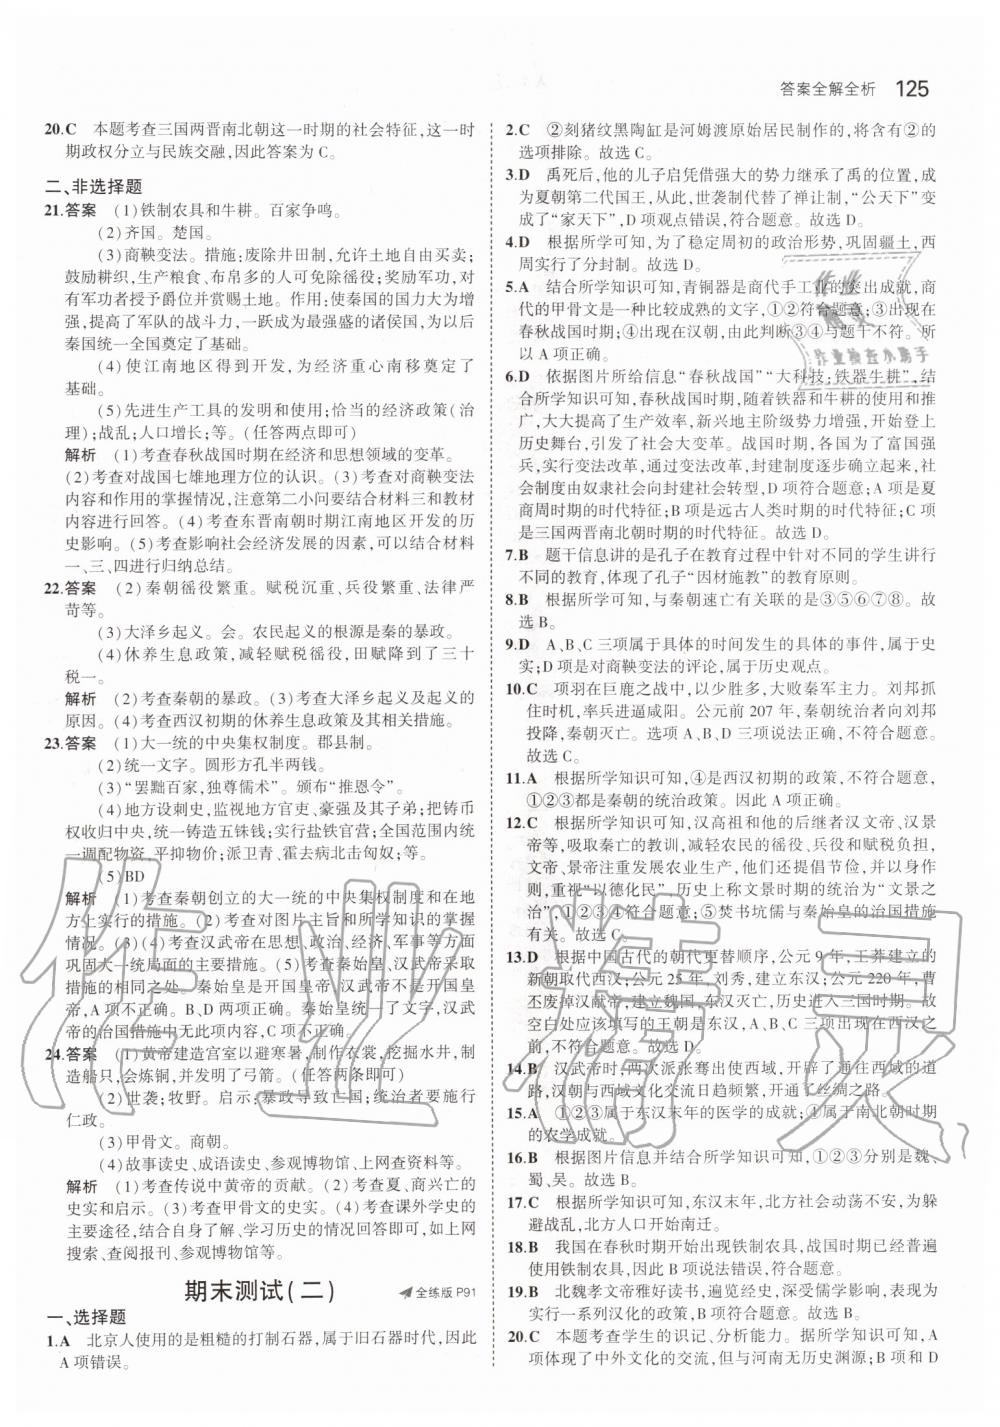 答案全解全析 125
20.C 本题考查三国两晋南北朝这一时期的社会特征,这一时
期政权分立与民族交融,因此答案为 C。
二、非选择题
21.答案 (1)铁制农具和牛耕。百家争鸣。
(2)齐国。楚国。
(3)商鞅变法。措施:废除井田制,允许土地自由买卖;
鼓励耕织,生产粮食、布帛多的人可免除徭役;奖励军功,对
有军功者授予爵位并赏赐土地。作用:使秦国的国力大为增
强,提高了军队的战斗力,一跃成为最强盛的诸侯国,为以后
秦国统一全国奠定了基础。
(4)使江南地区得到开发,为经济重心南移奠定了
基础。
(5)先进生产工具的发明和使用;恰当的经济政策(治
理);战乱;人口增长;等。(任答两点即可)
解析 (1)考查春秋战国时期在经济和思想领域的变革。
(2)考查对战国七雄地理方位的认识。(3)考查对商鞅变法
内容和作用的掌握情况,注意第二小问要结合材料三和教材
内容进行回答。(4)考查东晋南朝时期江南地区开发的历
史影响。(5)考查影响社会经济发展的因素,可以结合材料
一、三、四进行归纳总结。
22.答案 (2)秦朝徭役繁重。赋税沉重、兵役繁重、法律严
苛等。
(3)大泽乡起义。会。农民起义的根源是秦的暴政。
(4)休养生息政策,减轻赋税徭役,田赋降到了三十
税一。
解析 (2)考查秦朝的暴政。(3)考查大泽乡起义及起义的
原因。(4)考查西汉初期的休养生息政策及其相关措施。
23.答案 (1)大一统的中央集权制度。郡县制。
(2)统一文字。圆形方孔半两钱。
(3)“罢黜百家,独尊儒术”。颁布“推恩令”。
(4)地方设刺史,监视地方官吏、豪强及其子弟;把铸币
权收归中央,统一铸造五铢钱;实行盐铁官营;全国范围内统
一调配物资,平抑物价;派卫青、霍去病北击匈奴;等。
(5)BD
解析 (1)考查秦朝创立的大一统的中央集权制度和在地
方上实行的措施。(2)考查对图片主旨和所学知识的掌握
情况。(3)(4)考查汉武帝在思想、政治、经济、军事等方面
巩固大一统局面的主要措施。(5)考查秦始皇、汉武帝采取
措施的相同之处。秦始皇是开国皇帝,汉武帝不是开国皇
帝,A项不正确。B、D 两项正确。秦始皇统一了文字,汉武
帝的治国措施中无此项内容,C 项不正确。
24.答案 (1)黄帝建造宫室以避寒暑,制作衣裳,挖掘水井,制
造船只,会炼铜,并发明了弓箭。(任答两条即可)
(2)世袭;牧野。启示:暴政导致亡国;统治者要施行
仁政。
(3)甲骨文。商朝。
(4)故事读史、成语读史、参观博物馆、上网查资料等。
解析 (1)考查传说中黄帝的贡献。(2)考查夏、商兴亡的
史实和启示。(3)考查甲骨文的史实。(4)考查课外学史的
主要途径,结合自身了解、学习历史的情况回答即可,如上网
搜索、查阅报刊、参观博物馆等。
期末测试(二) 全练版 P91
一、选择题
1.A 北京人使用的是粗糙的打制石器,属于旧石器时代,因此
A 项错误。
2.C ②刻猪纹黑陶缸是河姆渡原始居民制作的,将含有②的
选项排除。故选 C。
3.D 禹死后,他的儿子启凭借强大的势力继承了禹的位置,成
为夏朝第二代国王,从此,世袭制代替了禅让制,“公天下”变
成了“家天下”,D 项观点错误,符合题意。故选 D。
4.D 根据所学可知,为了稳定周初的政治形势,巩固疆土,西
周实行了分封制。故选 D。
5.A 结合所学知识可知,青铜器是商代手工业的突出成就,商
代的甲骨文是一种比较成熟的文字,①②符合题意;③出现在
春秋战国时期;④出现在汉朝,由此判断③④与题干不符。所
以 A 项正确。
6.D 依据图片所给信息“春秋战国”“大科技:铁器牛耕”,结
合所学知识可知,春秋战国时期,随着铁器和牛耕的使用和推
广,大大提高了生产效率,新兴地主阶级势力增强,开始登上
历史舞台,引发了社会大变革。战国时期,各国为了富国强
兵,实行变法改革,通过变法改革,封建制度逐步确立起来,社
会制度由奴隶社会向封建社会转型,D 项符合题意;A 项是夏
商周时期的时代特征;B 项是远古人类时期的时代特征;C 项
是三国两晋南北朝时期的时代特征。故选 D。
7.B 题干信息讲的是孔子在教育过程中针对不同的学生讲行
不同的教育,体现了孔子“因材施教”的教育原则。
8.B 根据所学可知,与秦朝速亡有关联的是③⑤⑥⑦⑧。故
选 B。
9.D A、B、C 三项属于具体的时间发生的具体的事件,属于史
实;D 项是对商鞅变法的评论,属于历史观点。
10.C 项羽在巨鹿之战中,以少胜多,大败秦军主力。刘邦抓
住时机,率兵进逼咸阳。公元前 207 年,秦朝统治者向刘邦
投降,秦朝灭亡。选项 A、B、D 三项说法正确,不符合题意。
故选 C。
11.A 根据所学知识可知,④是西汉初期的政策,不符合题意,
①②③都是秦朝的统治政策。因此 A 项正确。
12.C 根据所学知识可知,汉高祖和他的后继者汉文帝、汉景
帝等,吸取秦亡的教训,减轻农民的徭役、兵役和赋税负担,
文帝、景帝注重发展农业生产,他们还提倡节俭,并以身作
则,重视“以德化民”,历史上称文景时期的统治为“文景之
治”,①②③④符合题意;⑤焚书坑儒与秦始皇的治国措施
有关。故选 C。
13.D 根据中国古代的朝代更替顺序,公元 9 年,王莽建立的
新朝取代西汉;公元 25 年,刘秀,建立东汉;公元 220 年,曹
丕废掉汉献帝,建立魏国,东汉灭亡,历史进入三国时期。故
空白处应该填写的王朝是东汉,A、B、C 三项不符合题意。
故选 D。
14.B 汉武帝时,两次派张骞出使西域,开辟了通往西域的道
路,汉朝与西域文化交流日趋频繁,开通了丝绸之路。
15.A ①②③属于东汉末年的医学的成就;④属于南北朝时期
的农学成就。
16.B 根据图片信息并结合所学知识可知,①②③分别是魏、
蜀、吴。故选 B。
17.C 根据所学知识可知,东汉末年,北方社会动荡不安,为躲
避战乱,北方人口开始南迁。
18.B 我国在春秋时期开始出现铁制农具,战国时已经普遍
使用铁制农具,因此 B 项说法错误,符合题意。
19.B 北魏孝文帝雅好读书,遍览经史,深受儒学影响,表现为
实行一系列汉化的政策,B 项符合题意。故选 B。
20.C 本题考查学生的识记、分析能力。据所学知识可知,A
项体现了中外文化的交流,但与河南无历史渊源;B 项和 D
作业精灵
作业检查小助手